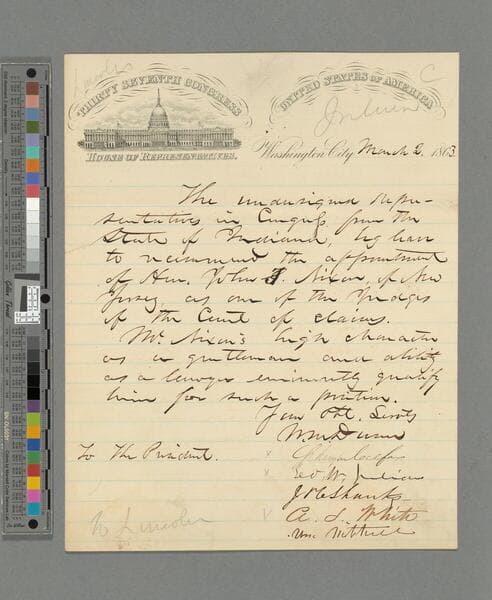 Lincoln
THIRTY SEVENTH CONGRESS
UNITED STATES OF AMERICA
C
HOUSE OF REPRESENTATIVES.
Washington City, March 2, 1863.
The undersigned Repre-
sentatives in Congress from the
State of Indiana, beg leave
to recommend the appointment
of Hon. John T. Nixon, of New
Jersey, as one of the Judges
of the Court of Claims.
Mr. Nixon's high character
as a gentleman and ability
as a lawyer eminently qualify
him for such a position.
Your Obt. Servts
W. M. Dunn
To The President.
Schuyler Colfax
Geo. W. Julian
J P C Shanks
A. S. White
Wm. Mitchell
Lincoln